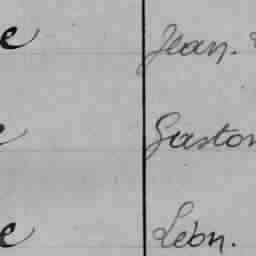 e Jean.
e Gaston
e Léon.